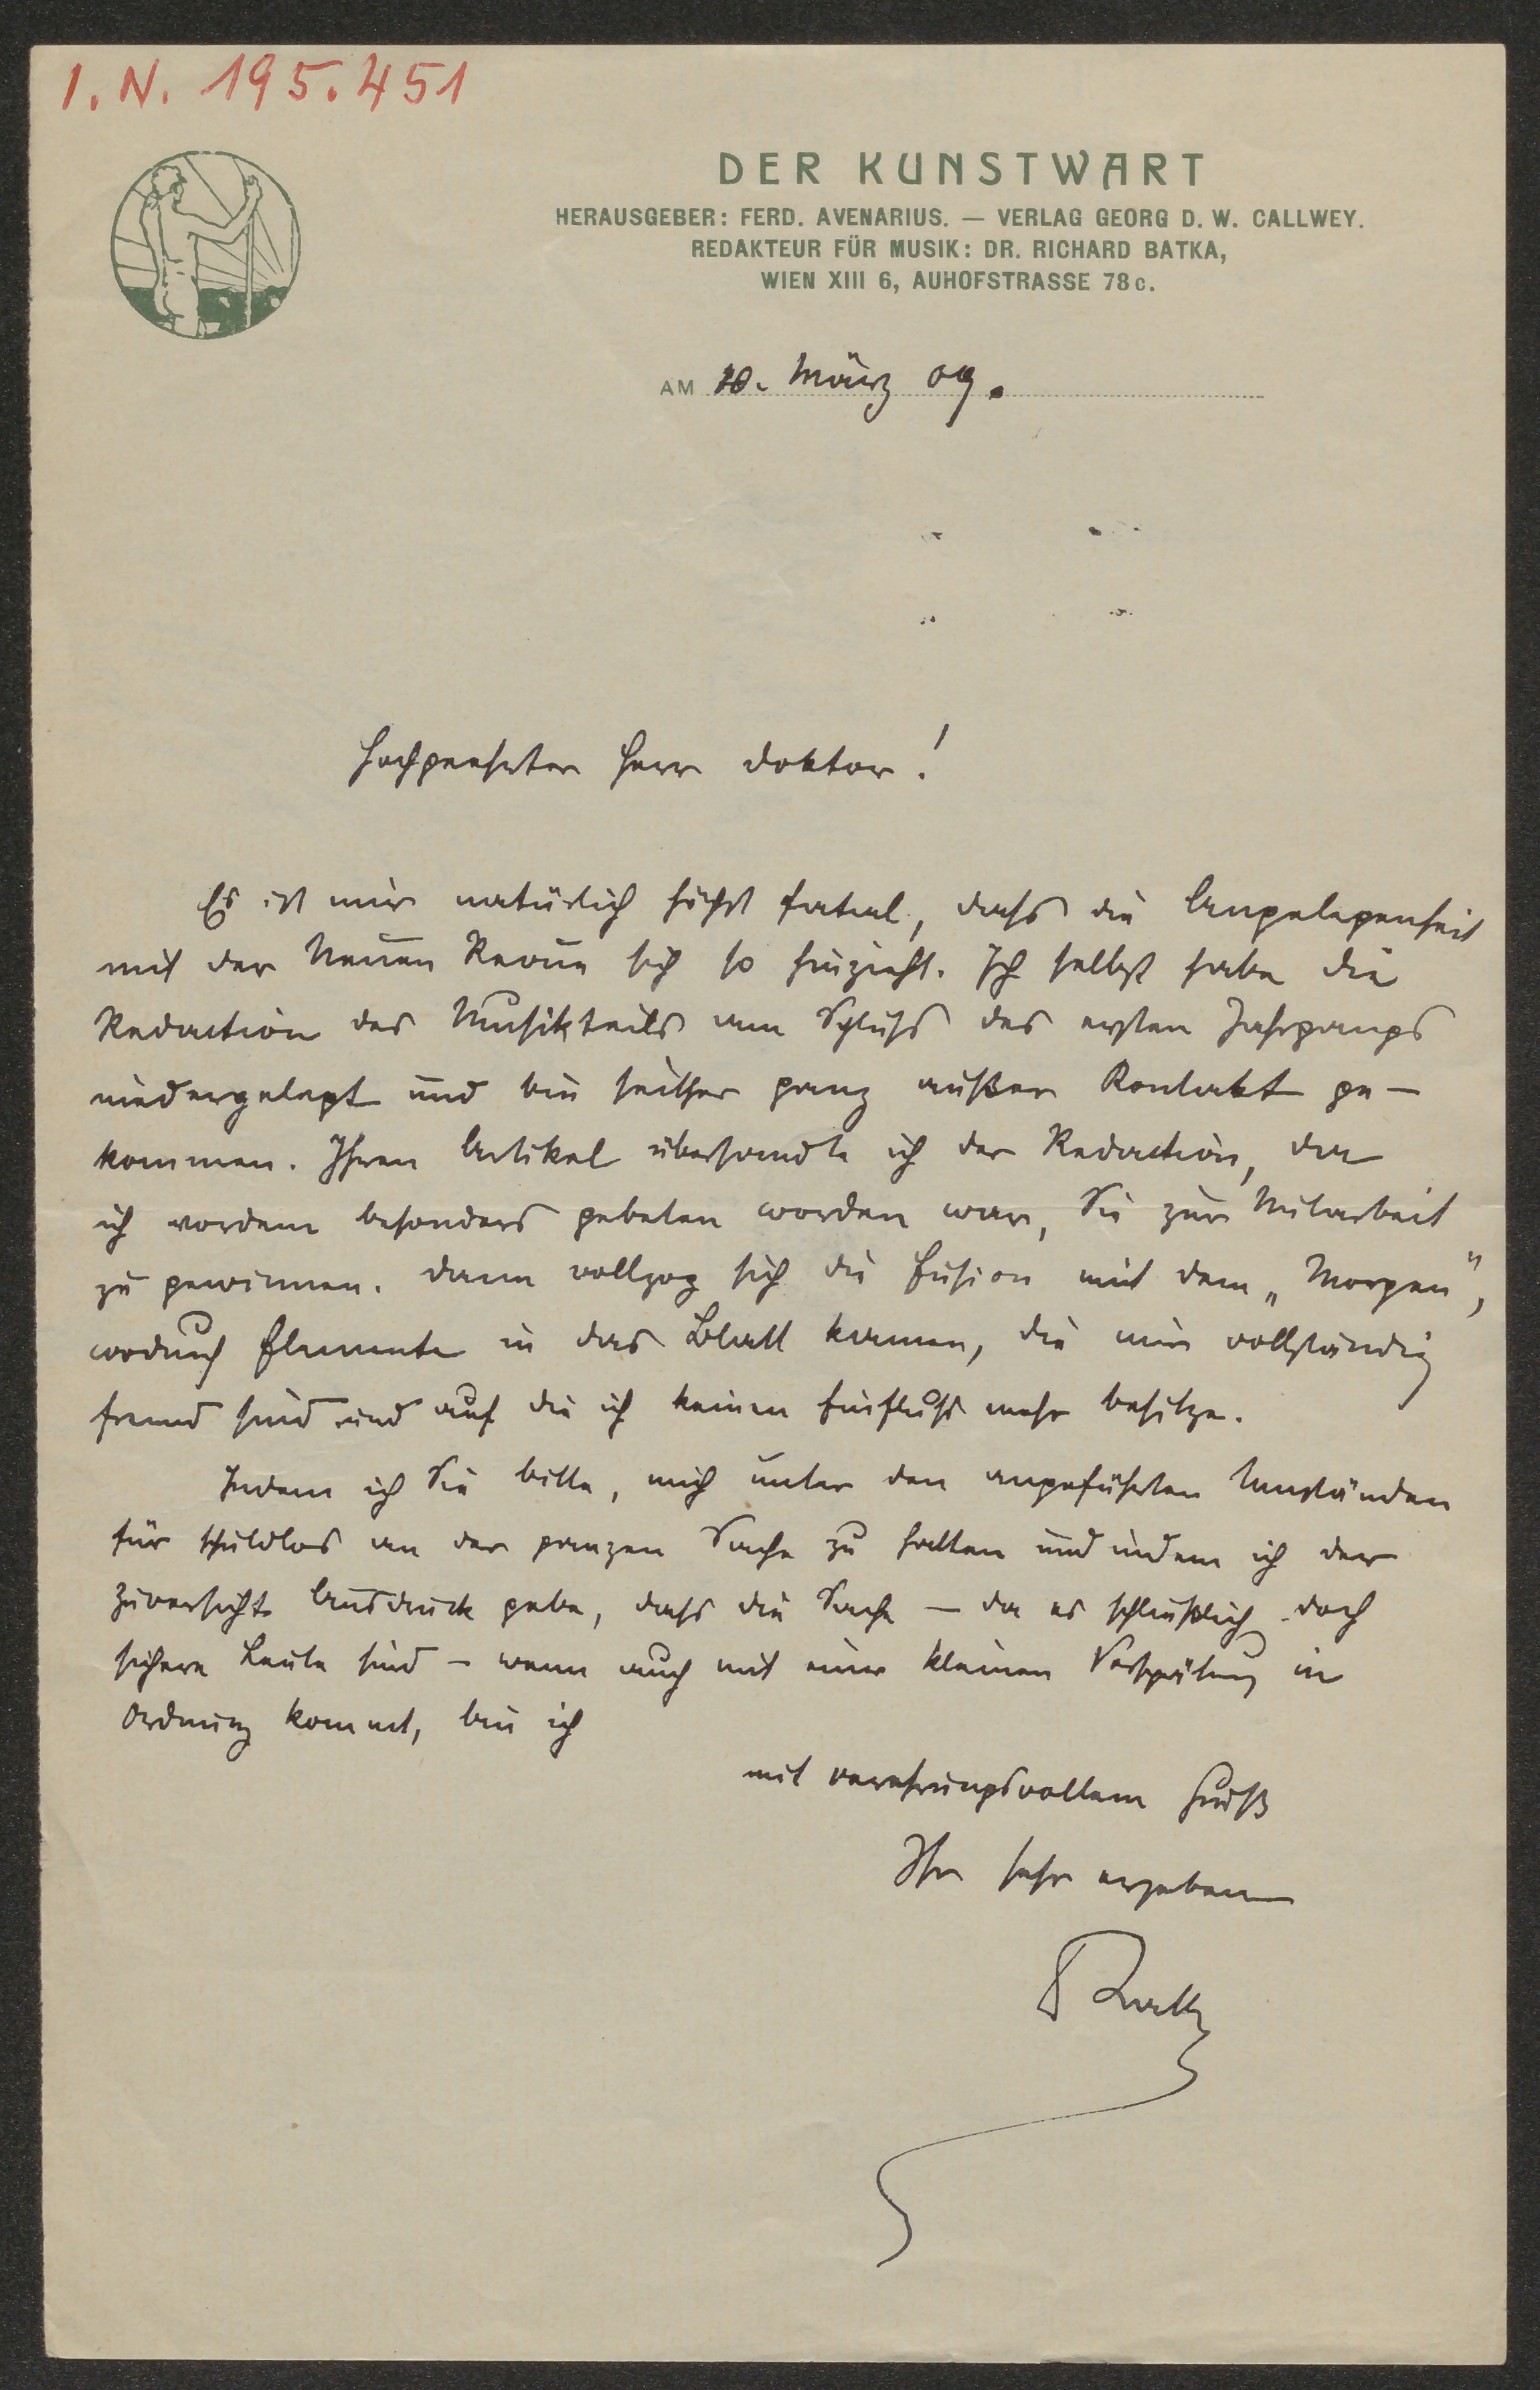 I. N. 195.451
DER KUNSTWART
HERAUSGEBER: FERD. AVENARIUS. — VERLAG GEORG D. W. CALLWEY.
REDAKTEUR FÜR MUSIK: DR. RICHARD BATKA,
WIEN XIII 6, AUHOFSTRASSE 78c.
AM 10. März 09.
Hochgeehrter Herr Doktor!
Es ist mir natürlich höchst fatal, dass die Angelegenheit
mit der Neuen Revue sich so hinzieht. Ich selbst habe die
Redaction des Musikteils am Schluss des ersten Jahrgangs
niedergelegt und bin seither ganz außer Kontakt ge-
kommen. Ihren Artikel übersandte ich der Redaction, da
ich vordem besonders gebeten worden war, Sie zur Mitarbeit
zu gewinnen. Dann vollzog sich die Fusion mit dem „Morgen",
wodurch Elemente in das Blatt kamen, die mir vollständig
fremd sind und auf die ich keinen Einfluss mehr besitze.
Indem ich Sie bitte, mich unter den angeführten Umständen
für schuldlos an der ganzen Sache zu halten und indem ich der
Zuversicht Ausdruck gebe, dass die Sache — da es schließlich doch
sichere Leute sind — wenn auch mit einer kleinen Verspätung in
Ordnung kommt, bin ich
mit verehrungsvollem Gruß
Ihr sehr ergeben
RBatka